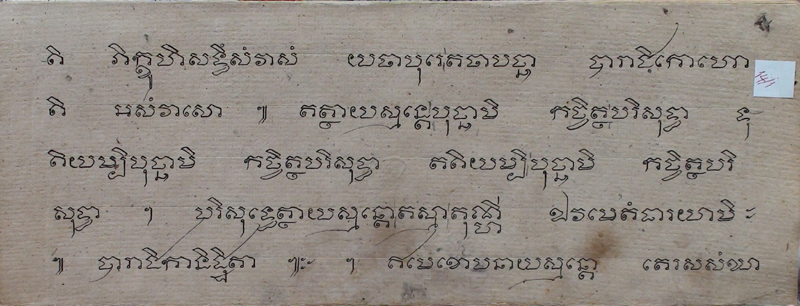 តិ ភិក្ខូហិ សទ្ធឹ សំវាសំ យថា បុរេ តថា បច្ឆា បារាជិកោ ហោ
តិ អសំវាសោ ៕ តត្ថាយស្មន្តេ បុច្ឆាមិ កច្ចិត្ថ បរិសុទ្ធា ទុ
តិយម្បិ បុច្ឆាមិ កច្ចិត្ថ បរិសុទ្ធា តតិយម្បិ បុច្ឆាមិ កច្ចិត្ថ បរិ
សុទ្ធា ។ បរិសុទ្ធេត្ថាយស្មន្តោ តស្មា តុណ្ហី ឯវមេតំ ធារយាមិ ៈ
៕ បារាជិកា និដ្ឋិតា ៕ៈ ។ ឥមេ ខោ បនាយស្មន្តោ តេរស សំឃា